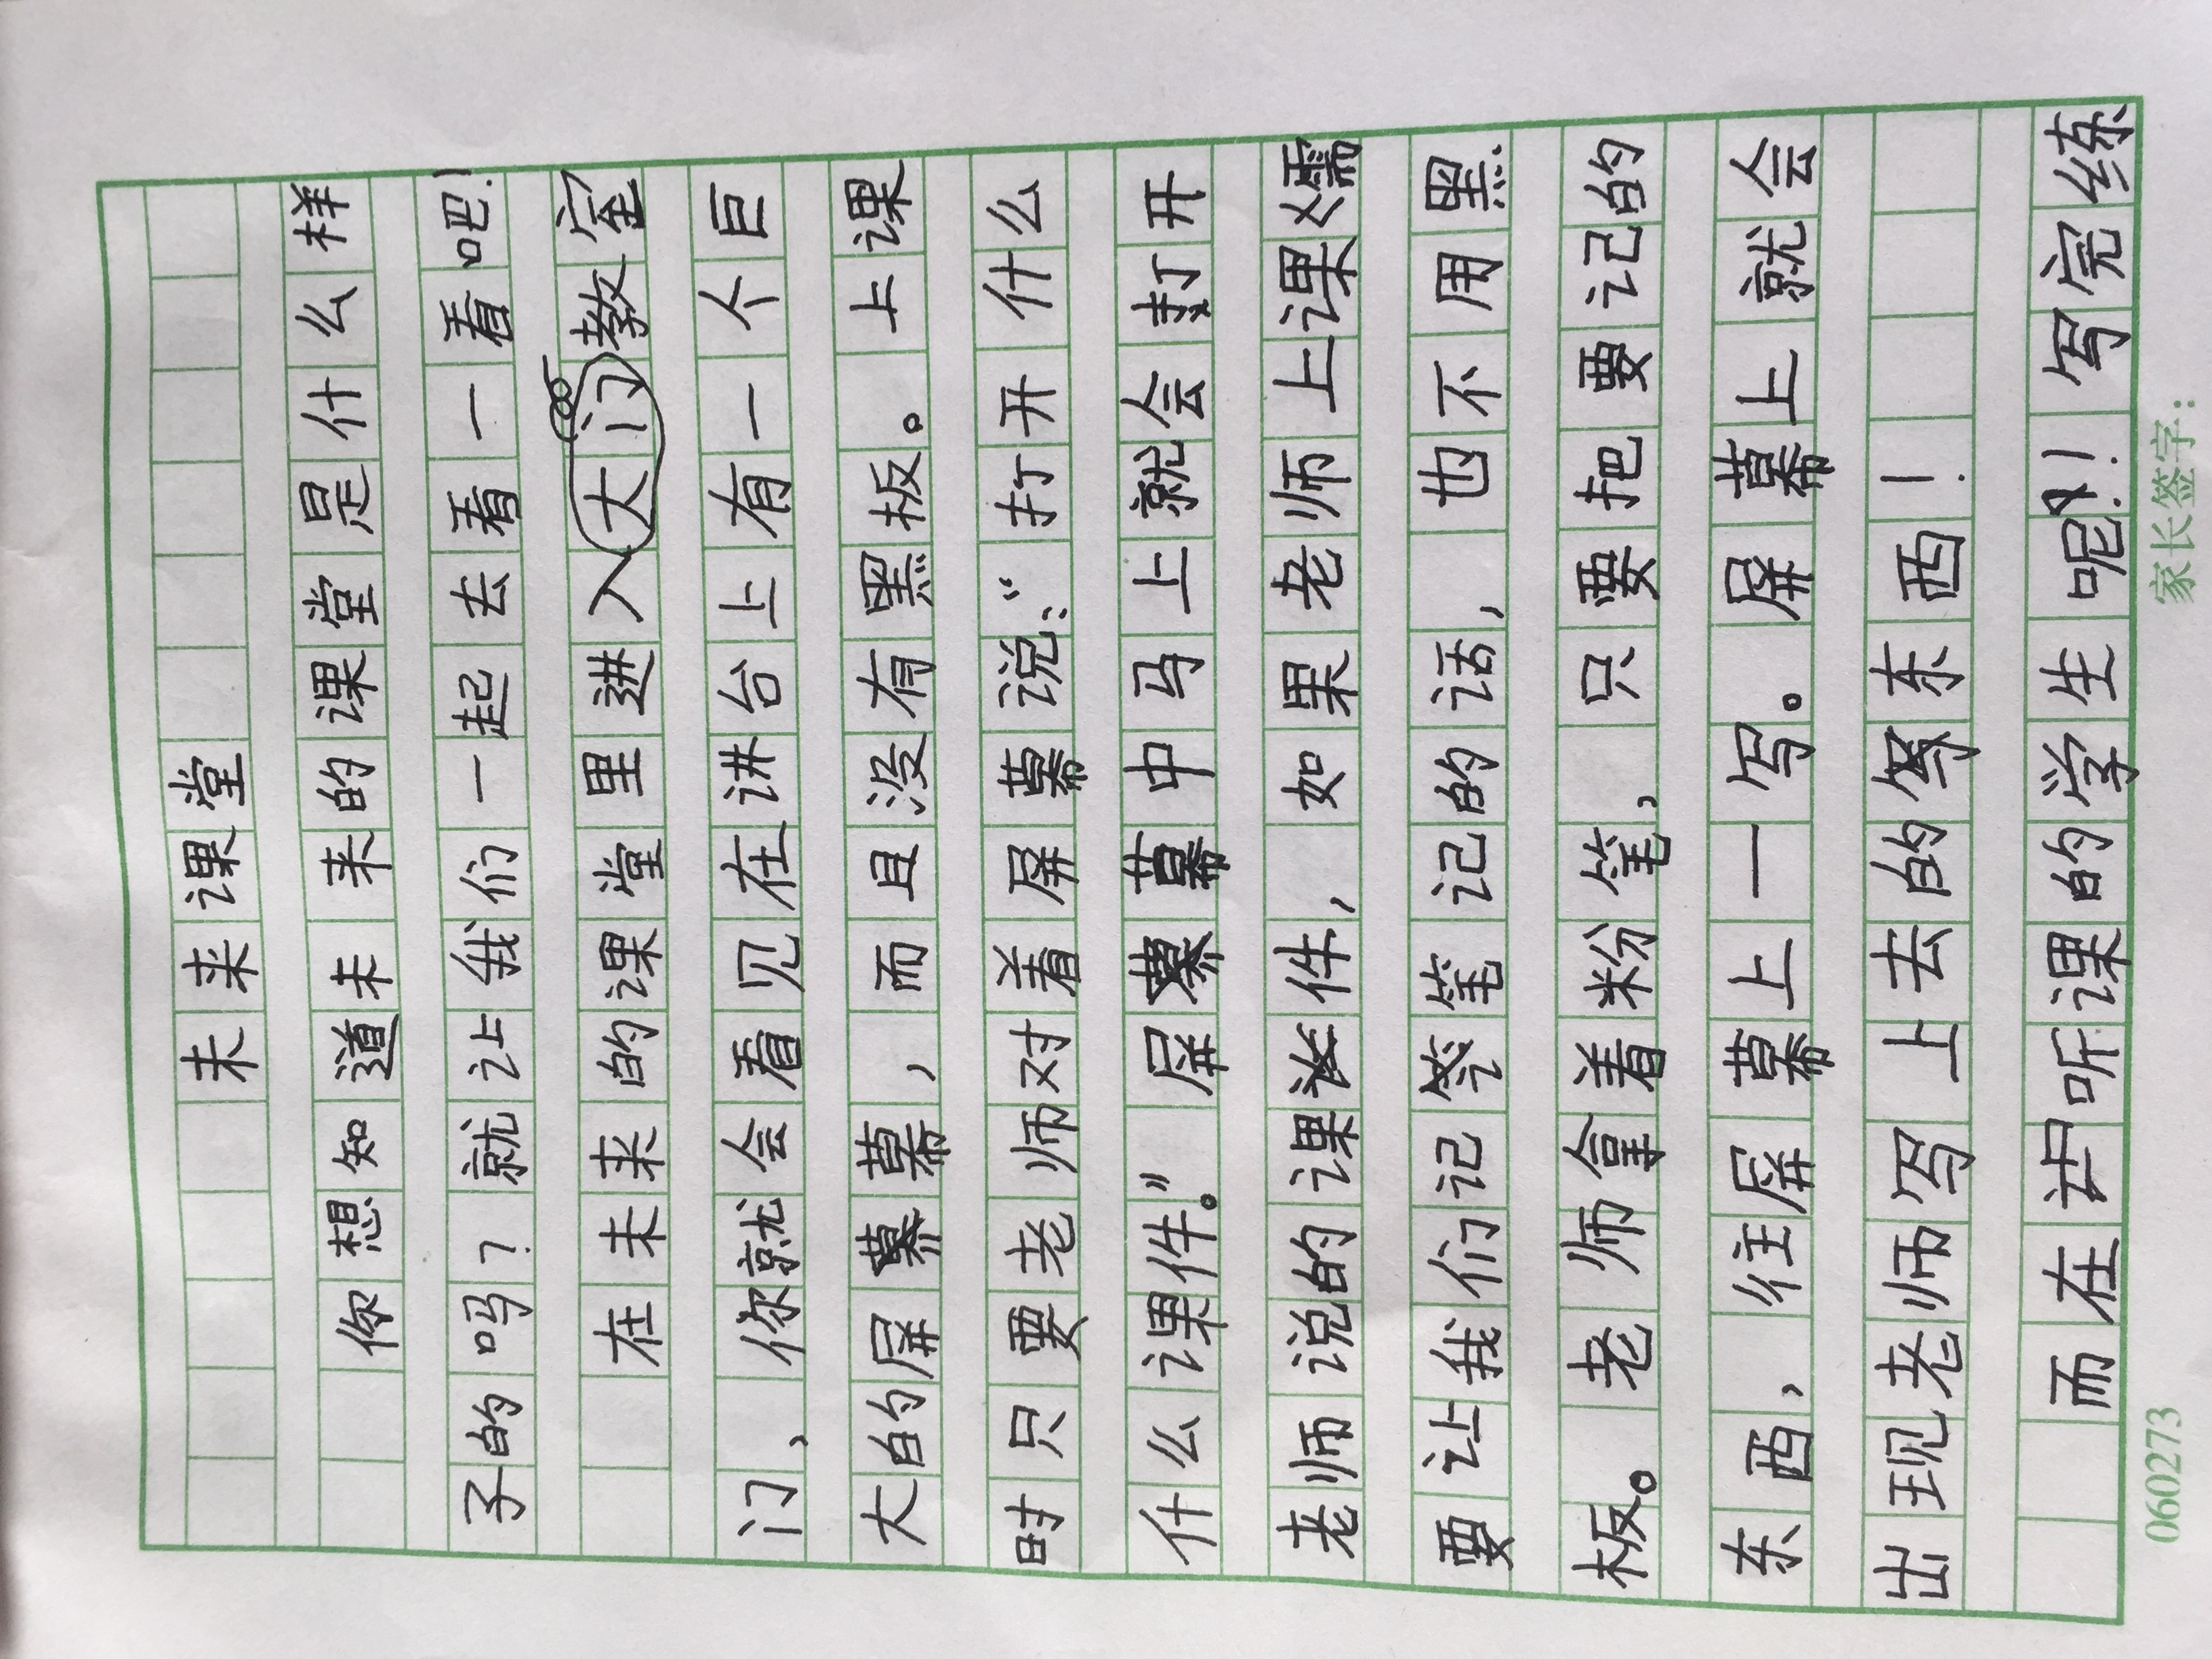 未来课堂
你想知道未来的课堂是什么样
子的吗?就让我们一起去看一看吧!
在未来的课堂里进入大门教室
门,你就会看见在讲台上有一个巨
大的屏幕,而且没有黑板。上课
时只要老师对着屏幕说:“打开什么
什么课件。”屏幕中马上就会打开
老师说的课件,如果老师上课需
要让我们记笔记的话,也不用黑
板。老师拿着粉笔,只要把要记的
东西,往屏幕上一写。屏幕上就会
出现老师写上去的东西!
而在听课的学生呢!写完练
060273 家长签字: